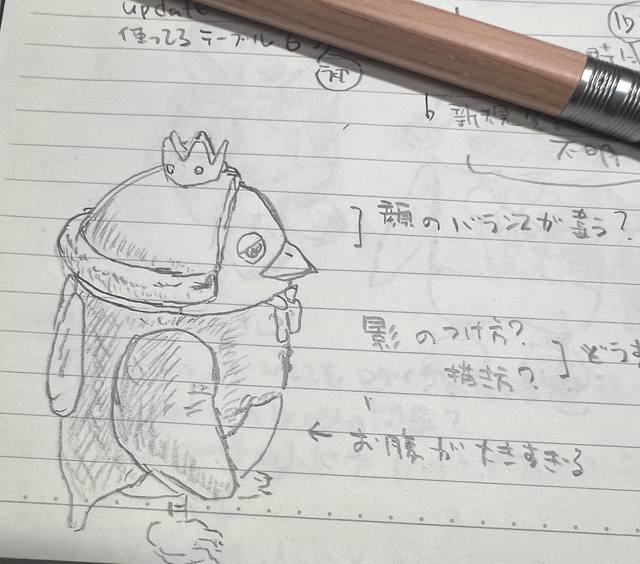 update
使ってるテーブル
新規
不明
顔のバランスが違う?
影のつけ方?
描き方?
どうす
← お腹が大きすぎる